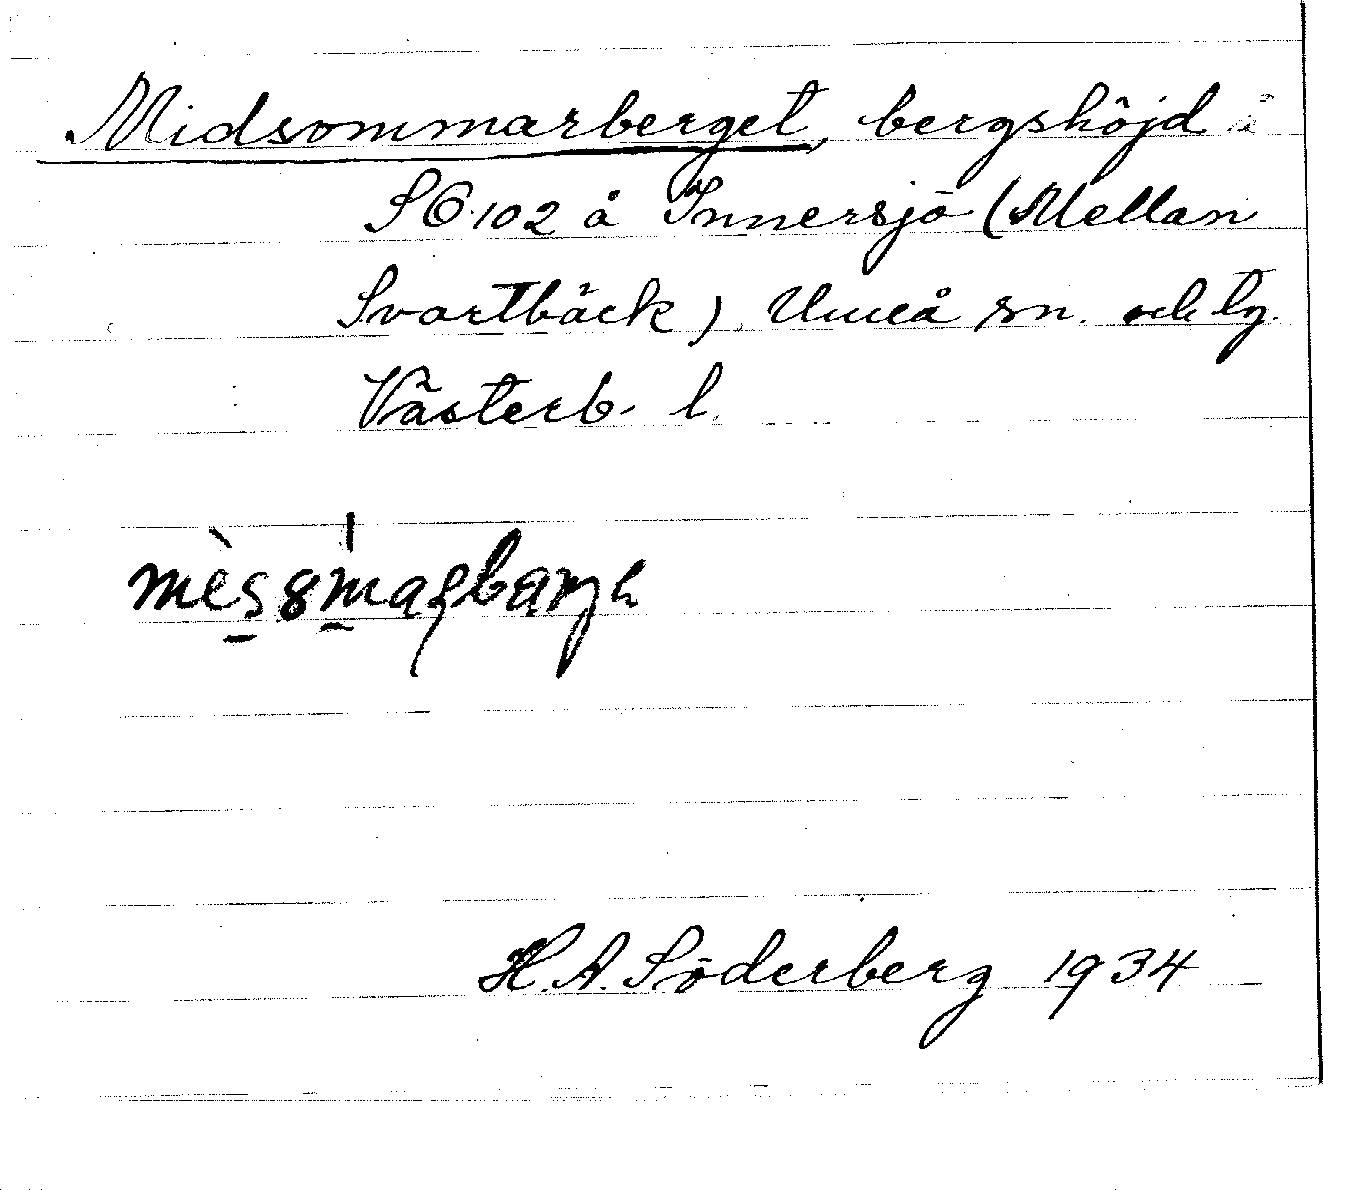 Midsommarberget, bergshöjd å
SO 102 å Innersjö (Mellan
Svartbäck), Umeå sn. och tg.
Västerb. l.
H. A. Söderberg 1934